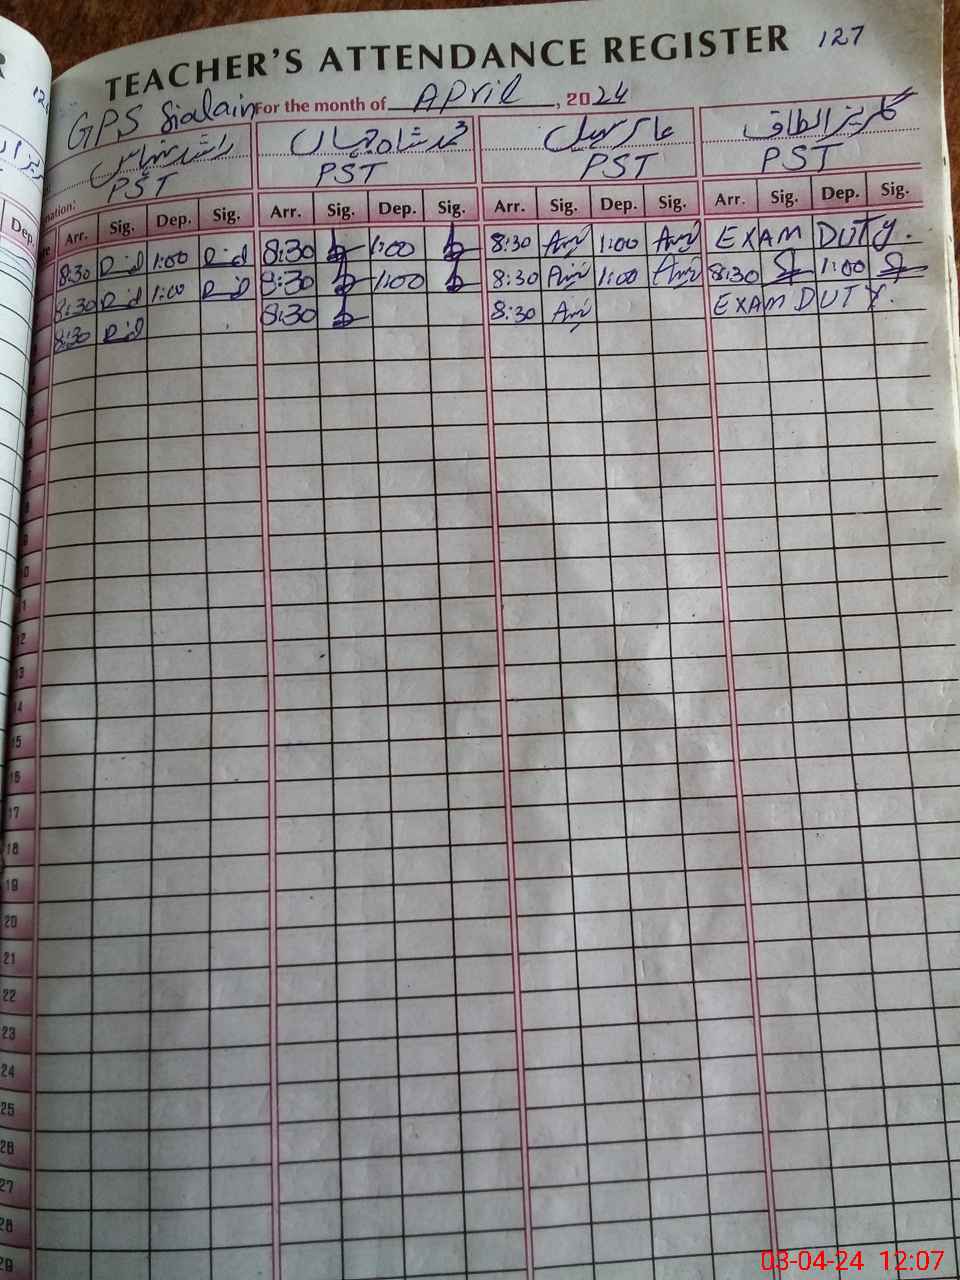 TEACHER'S ATTENDANCE REGISTER 127
GPS Sialain For the month of April, 2024
راشد محمد شاہ جہاں عامر سہیل گلریز الطاف
PST PST PST PST
Arr. Sig. Dep. Sig. Arr. Sig. Dep. Sig. Arr. Sig. Dep. Sig. Arr. Sig. Dep. Sig.
8:30 1:00 8:30 1:00 8:30 1:00 EXAM DUTY.
8:30 1:00 8:30 1:00 8:30 1:00 8:30 1:00
8:30 8:30 8:30 EXAM DUTY.
12
13
14
15
16
17
18
19
20
21
22
23
24
25
26
27
28
29
03-04-24 12:07